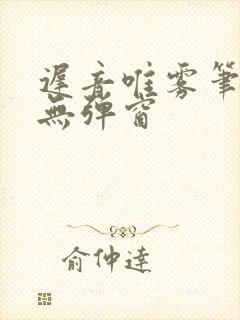 遲音唯雾筆
無弹窗
俞仲達